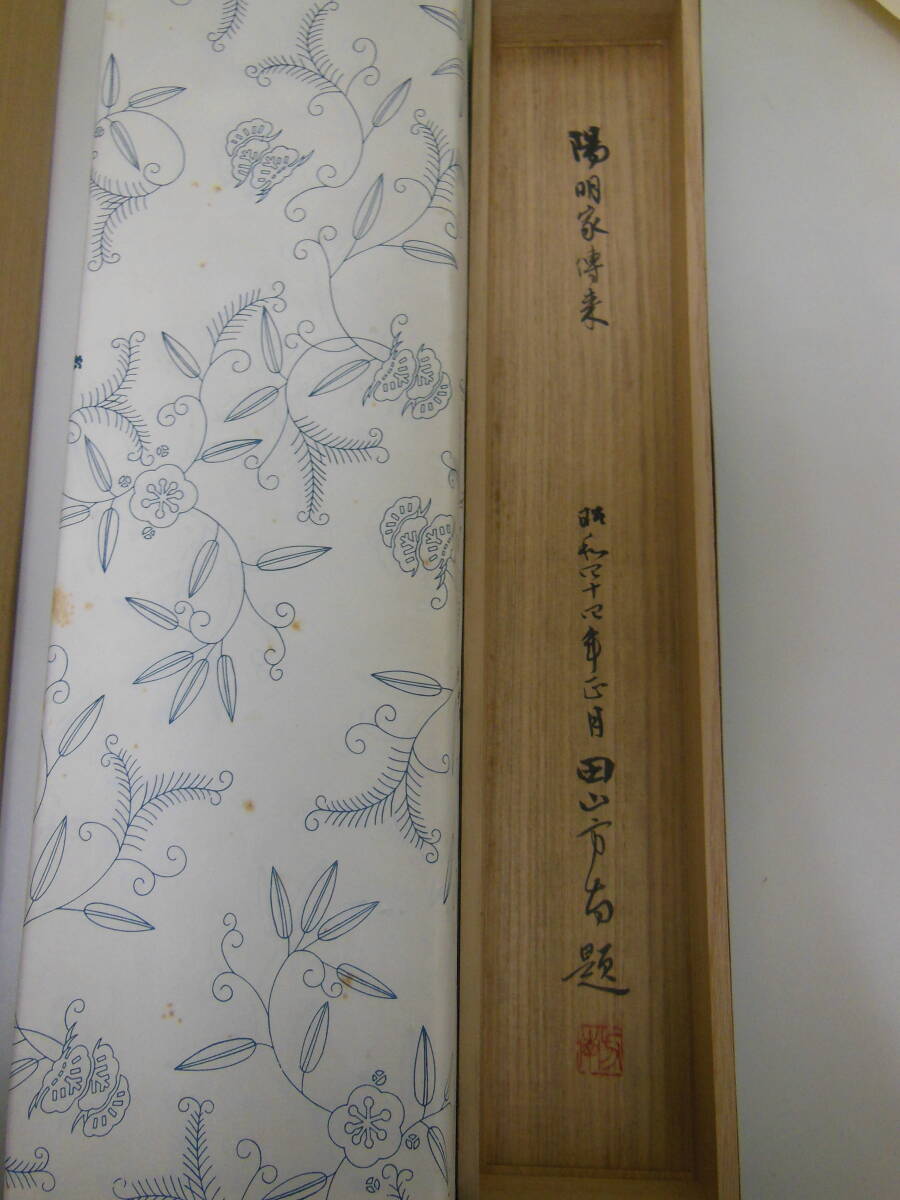 陽明家傳来
昭和四十四年正月 田山方南題
方南